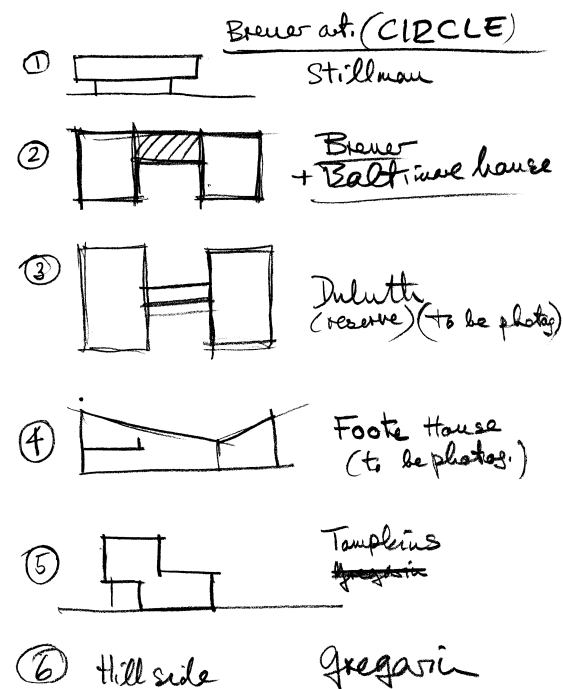 Breuer art. (CIRCLE)
① Stillman
② Breuer
+ Baltimore house
③ Duluth
(reserve) (to be photog)
④ Foote House
(to be photog.)
⑤ Tompkins
Gregarin
⑥ Hillside Gregarin